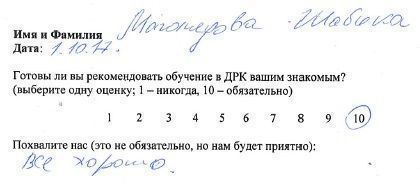 Имя и Фамилия Магомедова
Дата: 1.10.17.
Готовы ли вы рекомендовать обучение в ДРК вашим знакомым?
(выберите одну оценку; 1 – никогда, 10 – обязательно)
1 2 3 4 5 6 7 8 9 10
Похвалите нас (это не обязательно, но нам будет приятно):
Все хорошо.